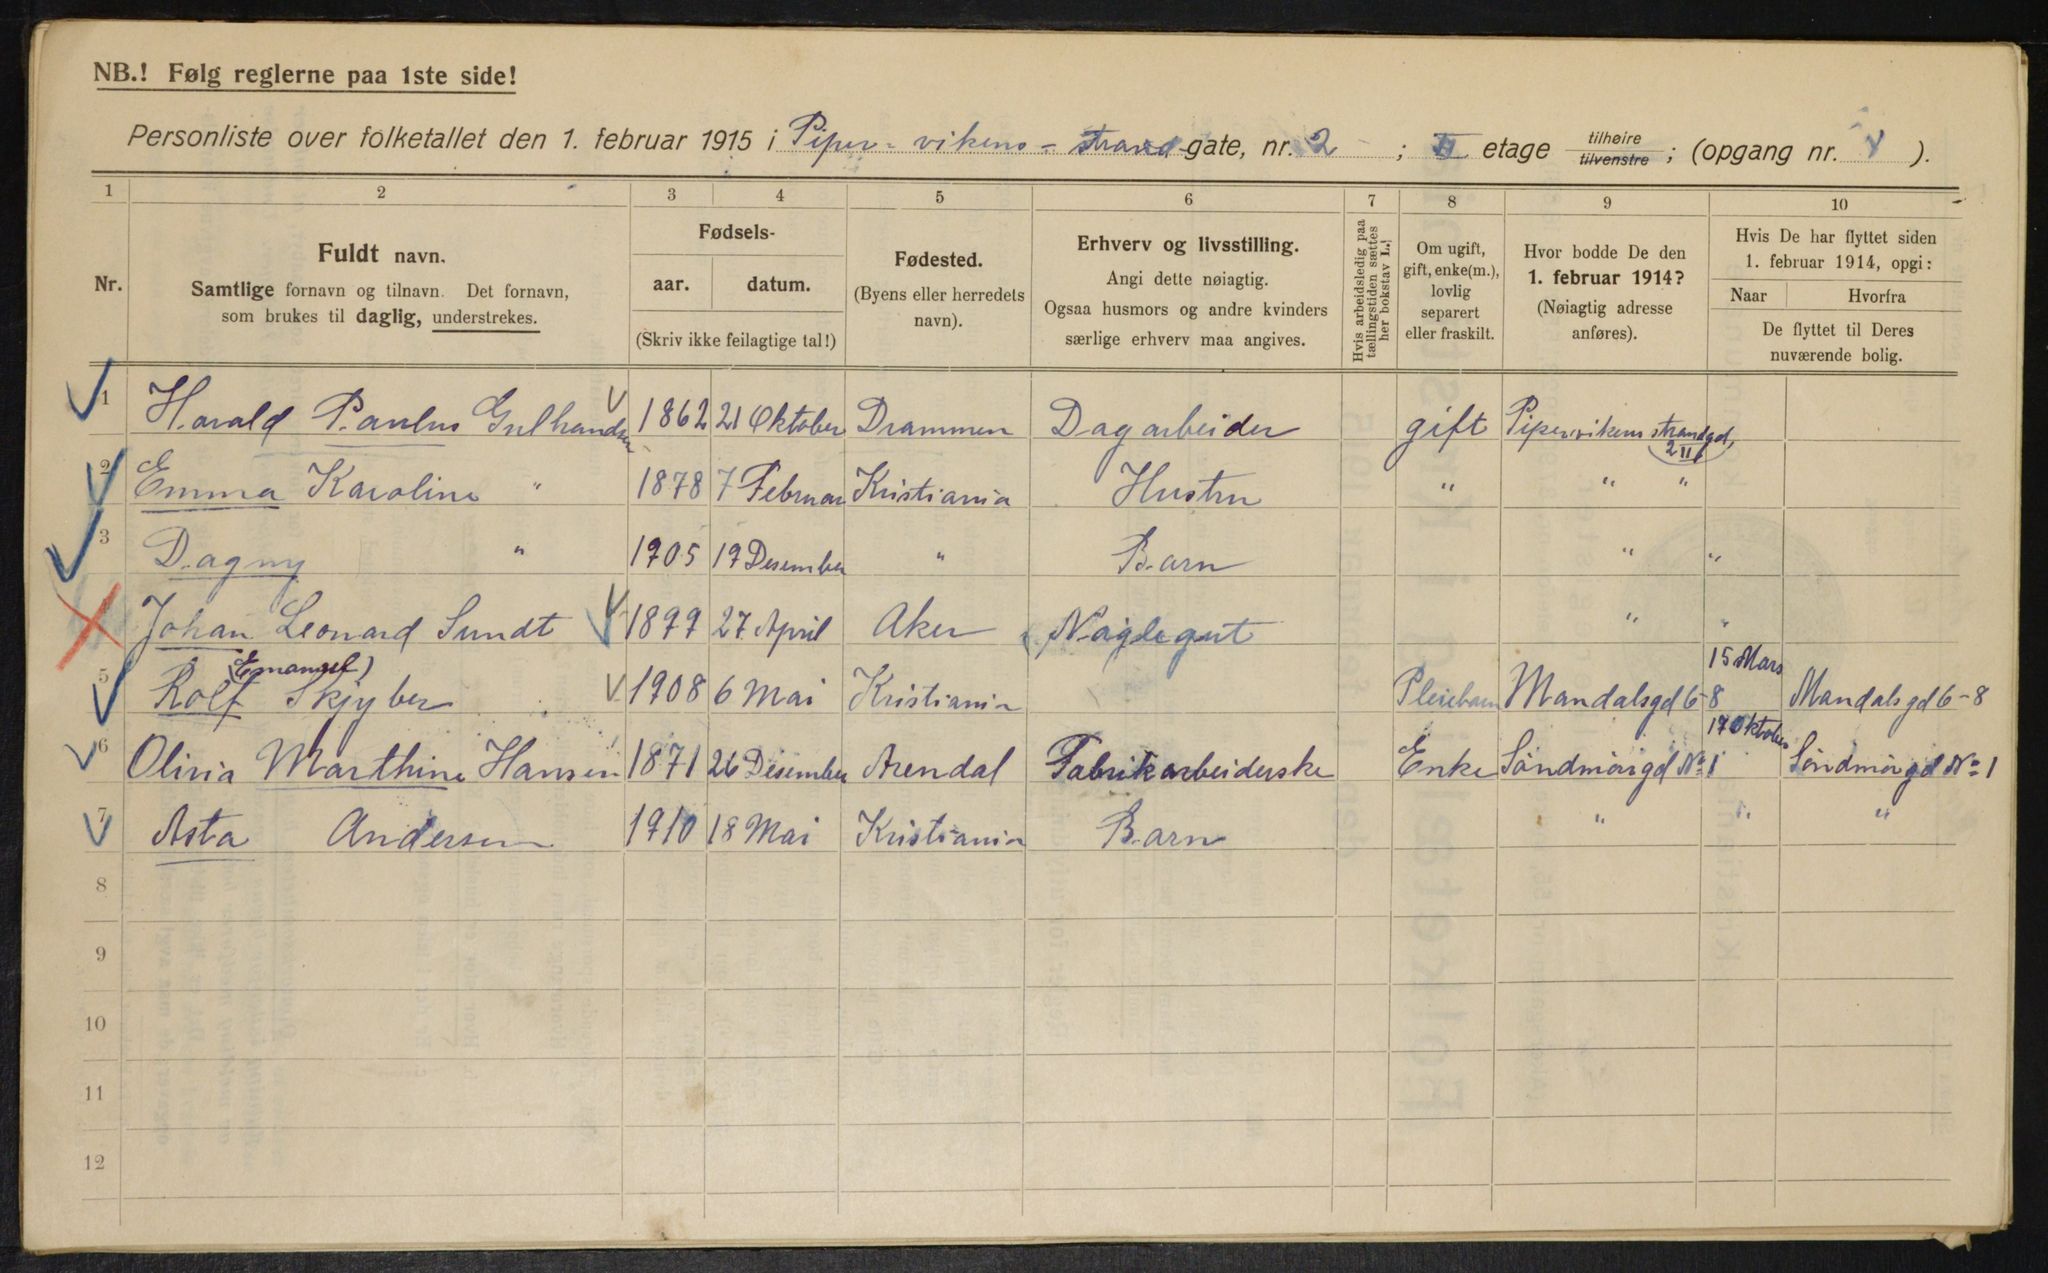 NB.! Følg reglerne paa 1ste side!
Personliste over folketallet den 1. februar 1915 i Piper-vikens-strand gate, nr. 2 ; II etage tilhøire tilvenstre ; (opgang nr. ).
1 2 3 4 5 6 7 8 9 10
Nr.
Fuldt navn.
Samtlige fornavn og tilnavn. Det fornavn,
som brukes til daglig, understrekes.
Fødsels-
aar. datum.
(Skriv ikke feilagtige tal!)
Fødested.
(Byens eller herredets
navn).
Erhverv og livsstilling.
Angi dette nøiagtig.
Ogsaa husmors og andre kvinders
særlige erhverv maa angives.
Hvis arbeidsledig paa
tællingstiden sættes
her bokstav L.!
Om ugift,
gift, enke(m.),
lovlig
separert
eller fraskilt.
Hvor bodde De den
1. februar 1914?
(Nøiagtig adresse
anføres).
Hvis De har flyttet siden
1. februar 1914, opgi:
Naar Hvorfra
De flyttet til Deres
nuværende bolig.
1 Harald Paulus Gulhandsen 1862 21 Oktober Drammen Dagarbeider gift Pipervikens strandgd, 2 II
2 Emma Karoline " 1878 7 Februar Kristiania Hustru " " "
3 Dagny " 1905 19 Desember " Barn " "
Johan Leonard Sundt 1899 27 April Aker Naglegut " "
5 Rolf (Emanuel) Skjyber 1908 6 Mai Kristiania Pleiebarn Mandalsgd 6-8 15 Mars Mandalsgd 6-8
6 Olivia Marthine Hansen 1871 26 Desember Arendal Fabrikarbeiderske Enke Søndmørgd No 1 17 Oktober Søndmørgd No 1
7 Asta Andersen 1910 18 Mai Kristiania Barn " " "
8
9
10
11
12